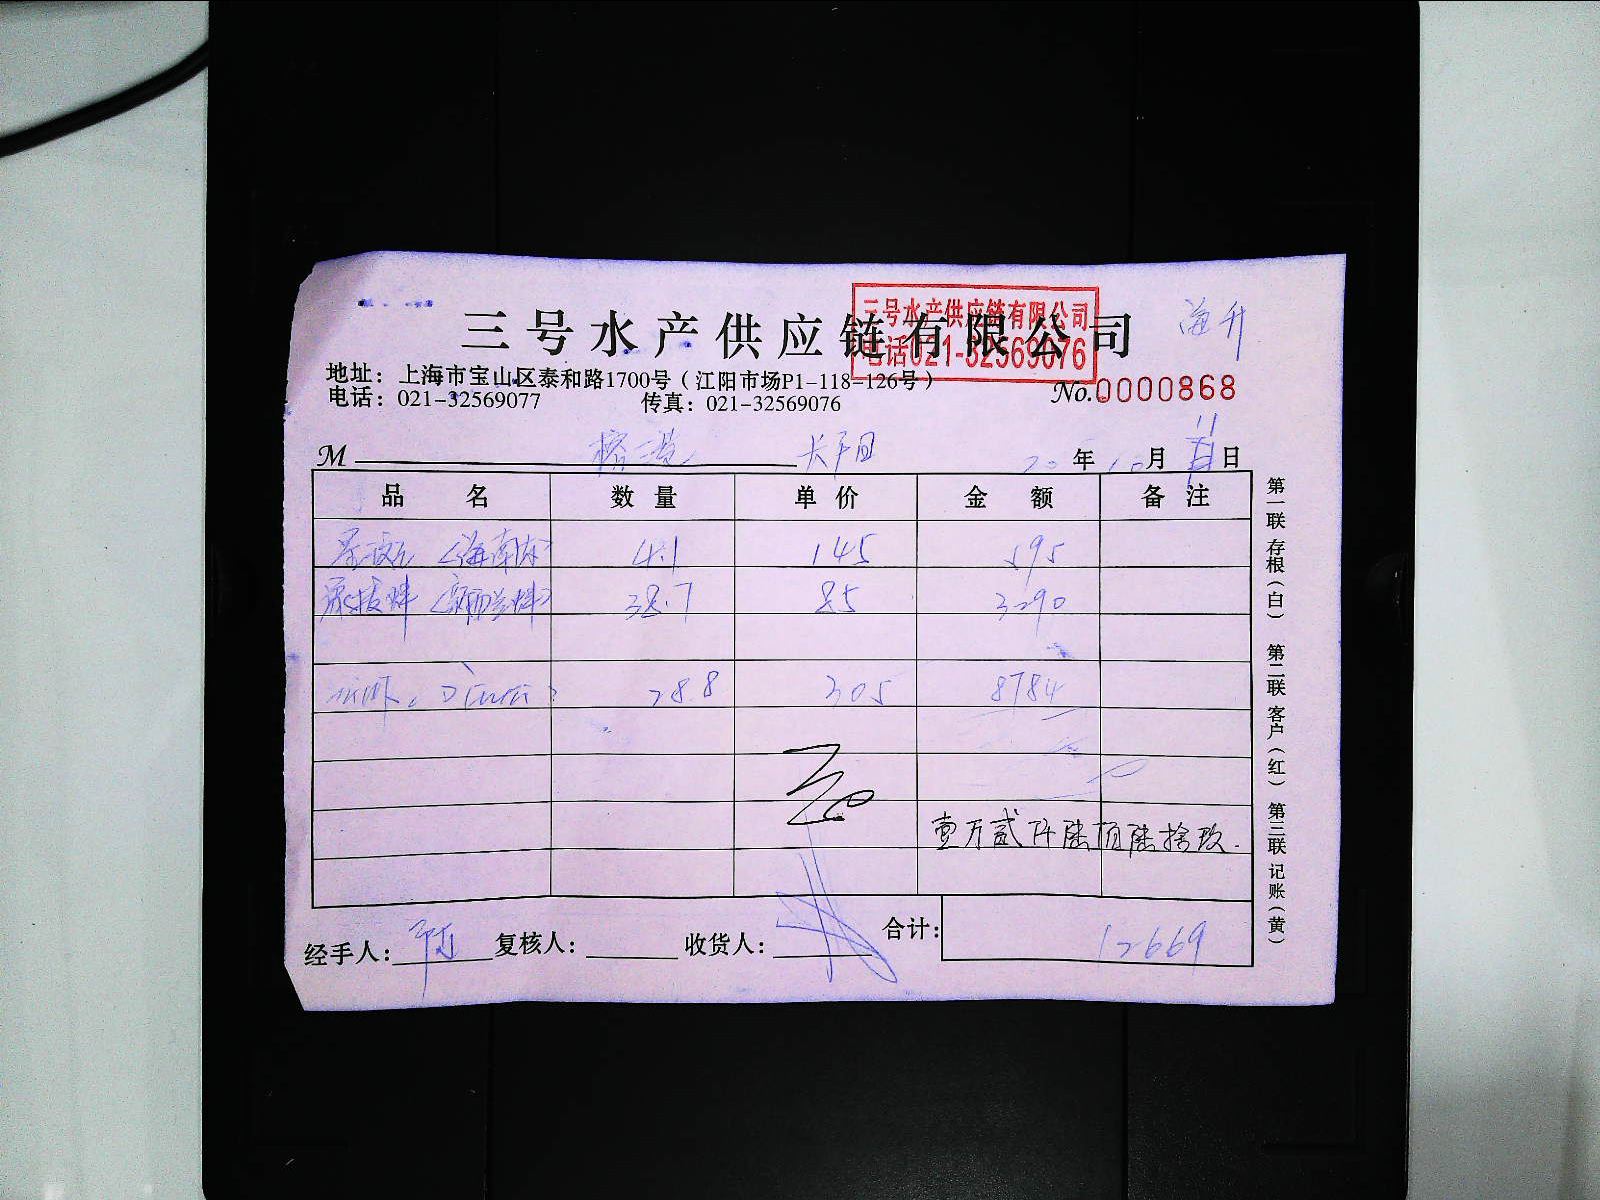 三号水产供应链有限公司
三号水产供应链有限公司
电话021-32569076
海升
地址：上海市宝山区泰和路1700号（江阳市场P1-118-126号）
电话：021-32569077 传真：021-32569076
No.0000868
M 20年10月11日
品名 数量 单价 金额 备注
4.1 145 595
38.7 85 3290
28.8 305 8784
壹万贰仟陆佰陆拾玖.
经手人： 复核人： 收货人： 合计： 12669
第一联存根（白） 第二联客户（红） 第三联记账（黄）